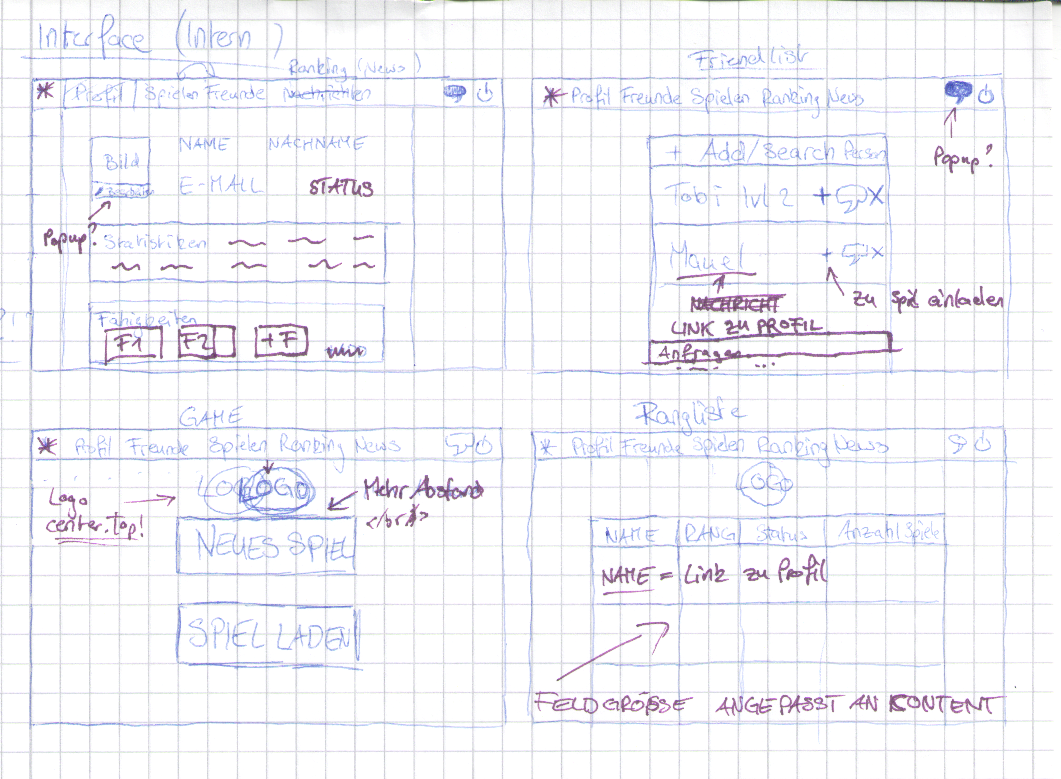 Interface (Intern)
Ranking (News)
* Profil Spielen Freunde Nachrichten
Bild
NAME NACHNAME
Bearbeiten
E-MAIL STATUS
Popup?
Statistiken
Fähigkeiten
F1 F2 +F
Friendlist
* Profil Freunde Spielen Ranking News
Popup?
+ Add/Search Person
Tobi lvl 2 + X
Manuel + X
zu Spiel einladen
NACHRICHT
LINK ZU PROFIL
Anfragen
...
GAME
* Profil Freunde Spielen Ranking News
LOGO LOGO
Logo
center.top!
Mehr Abstand
NEUES SPIEL
SPIEL LADEN
Rangliste
* Profil Freunde Spielen Ranking News
LOGO
NAME RANG Status Anzahl Spiele
NAME = Link zu Profil
FELDGRÖSSE ANGEPASST AN CONTENT